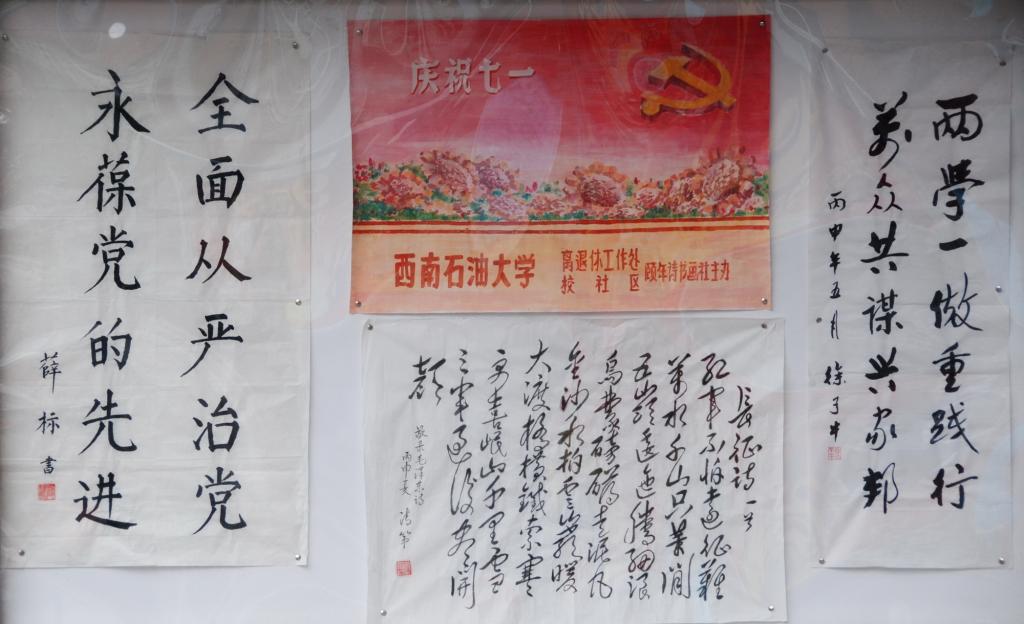 全面从严治党
永葆党的先进
薛标书
庆祝七一
西南石油大学
离退休工作处
校社区
颐年诗书画社主办
长征诗一首
红军不怕远征难
萬水千山只等闲
五岭逶迤腾细浪
乌蒙磅礴走泥丸
金沙水拍云崖暖
大渡桥横铁索寒
更喜岷山千里雪
三军过后尽开
颜
敬录毛泽东诗
丙申夏
两學一做重践行
萬众共谋兴家邦
丙申年五月
徐